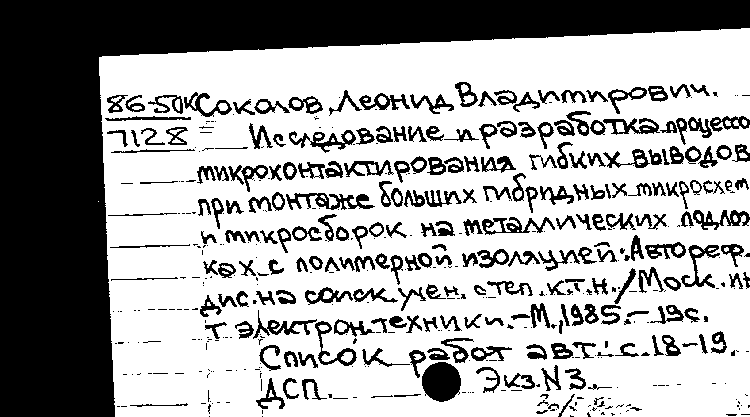 86-50К Соколов, Леонид Владимирович.
7128 Исследование и разработка процессо
микроконтактирования гибких выводов
при монтаже больших гибридных микросхем
и микросборок на металлических подлож
ках с полимерной изоляцией: Автореф.
дис. на соиск. учен. степ. к.т.н. / Моск. ин
т электрон. техники. – М., 1985. – 19с.
Список работ авт.: с. 18-19.
ДСП. Экз. N 3.